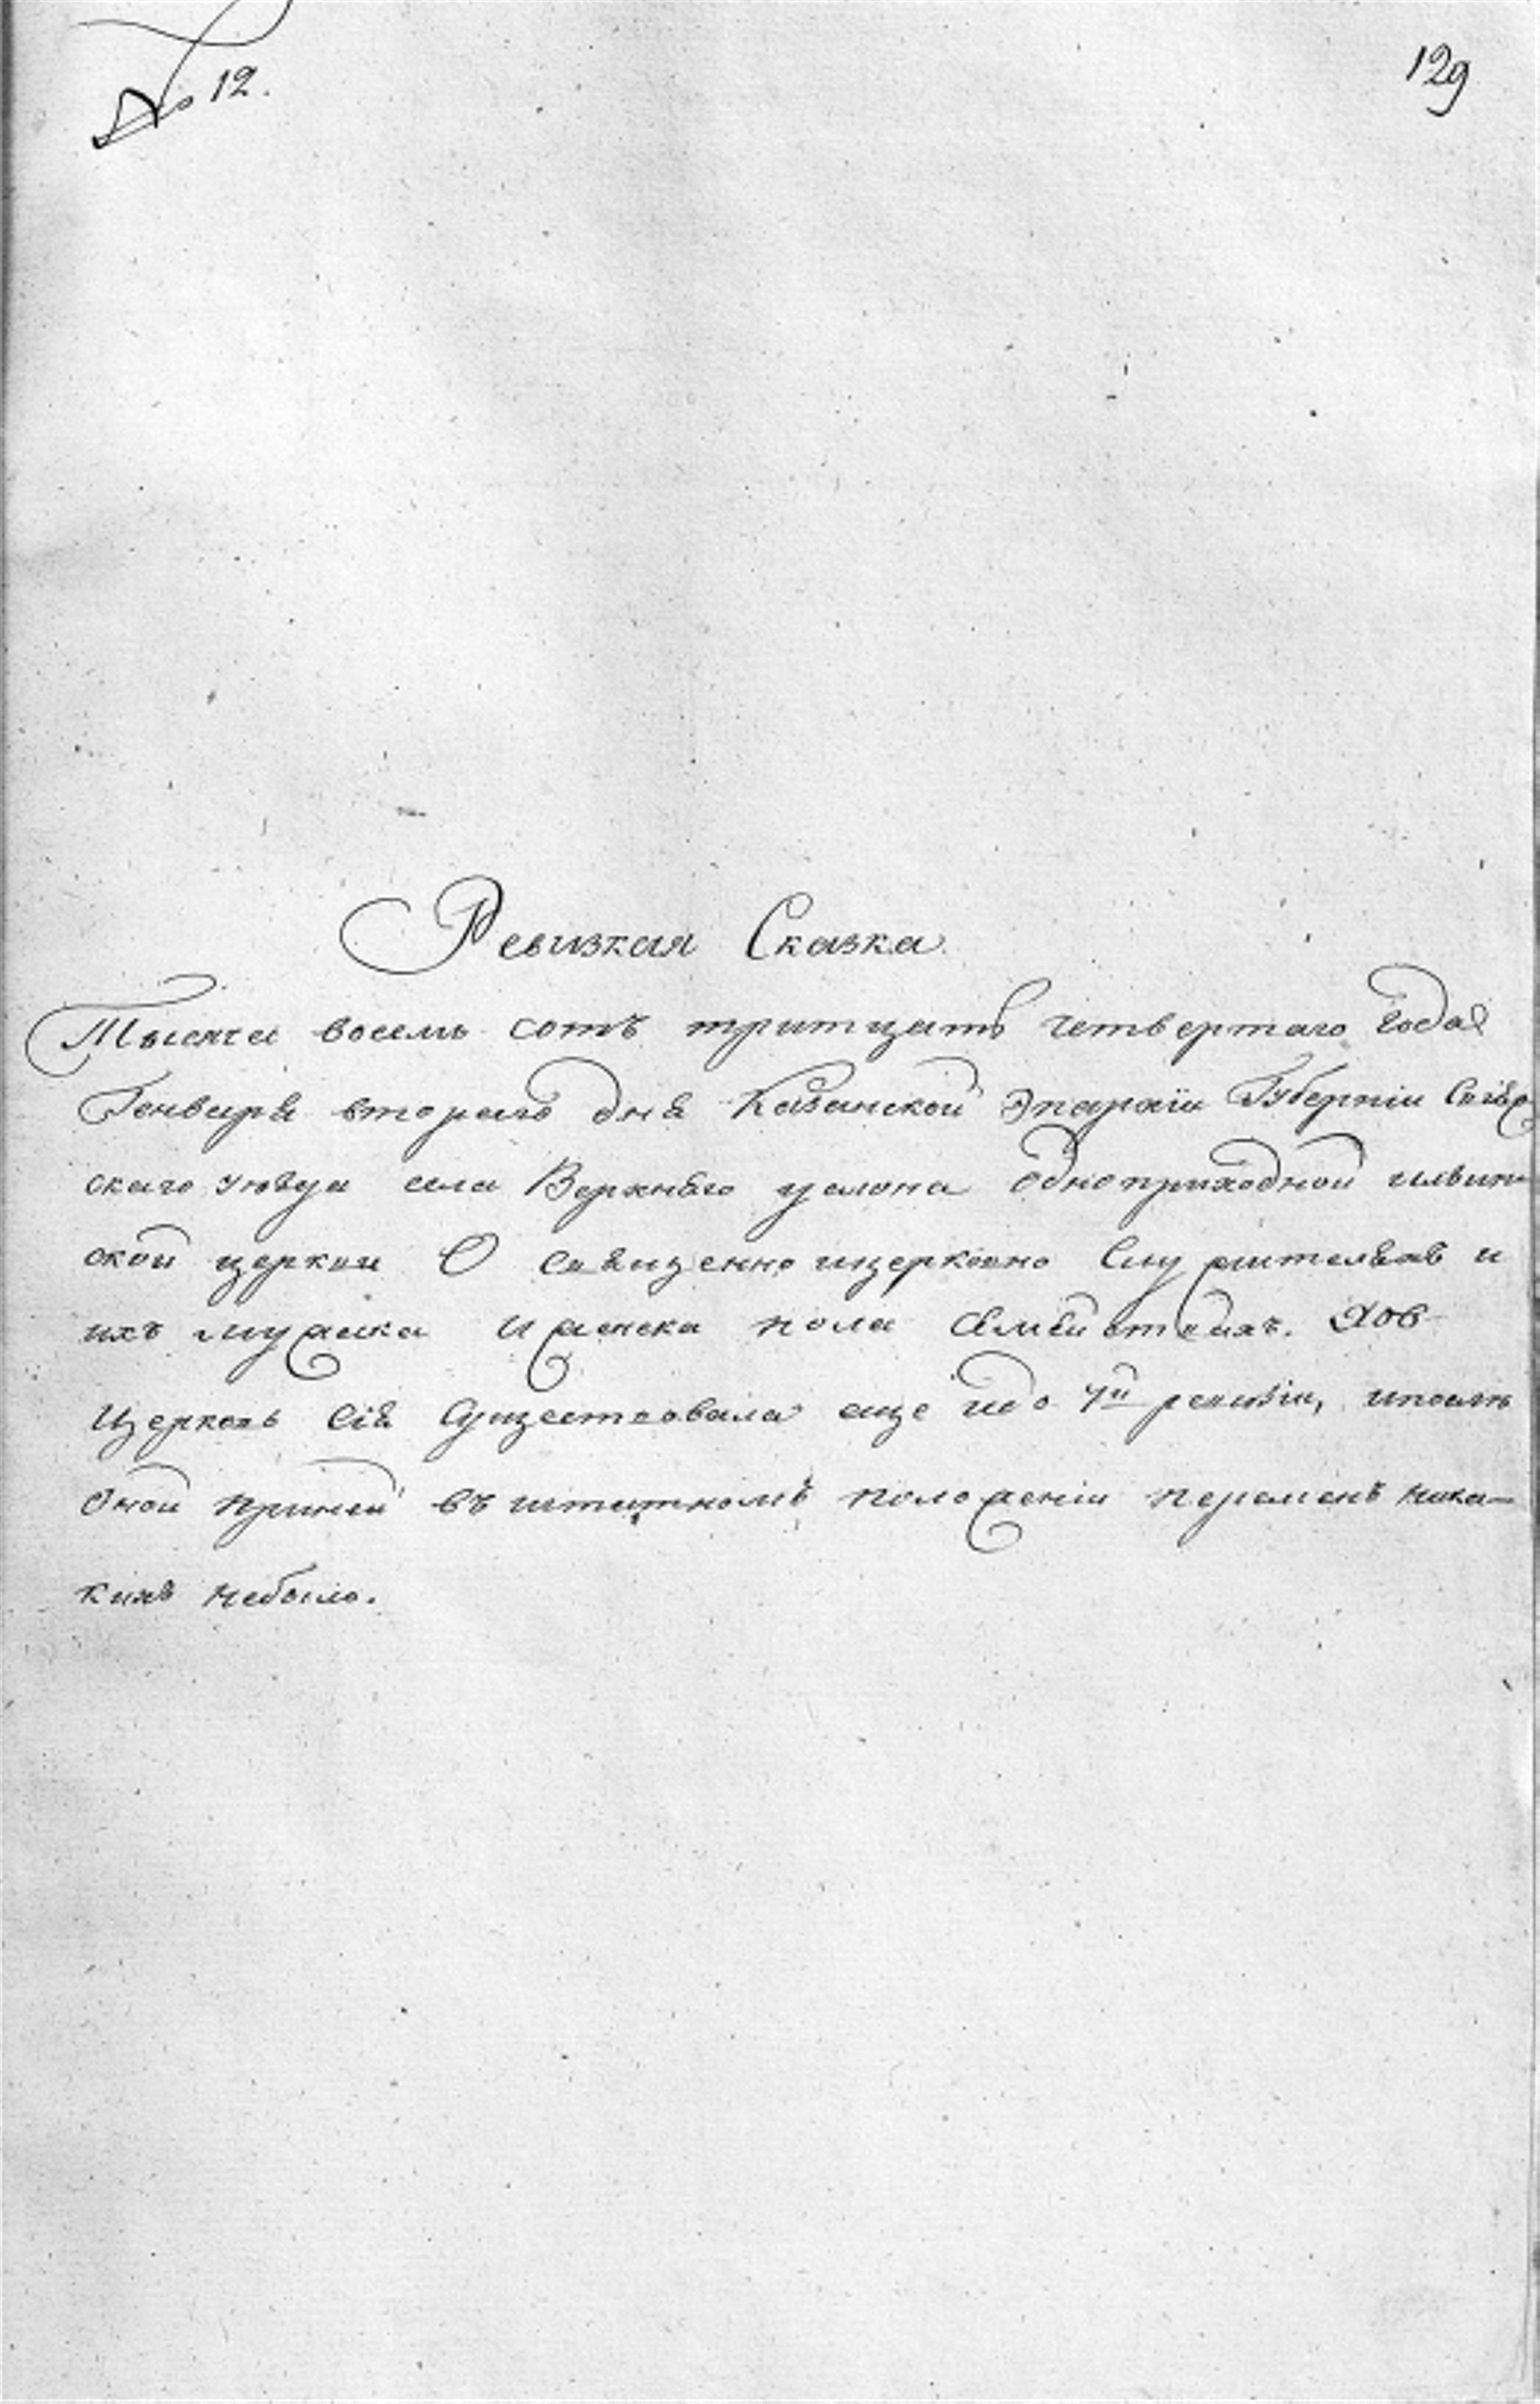 № 12.
129
Ревизкая Сказка
Тысяча восемь сотъ тритцать четвертаго года
Генваря втораго дня Казанской Эпархіи Губерніи Свіяж
скаго уѣзда села Верхняго услона одноприходной ильин
ской церкви О священно ицерковно Служителяхъ и
ихъ мужеска и женска пола
Церковь Сія Существовала еще идо 7й ревизіи, ипослѣ
Оной приней въ штатномъ положеніи перемѣнъ ника-
кихъ небыло.